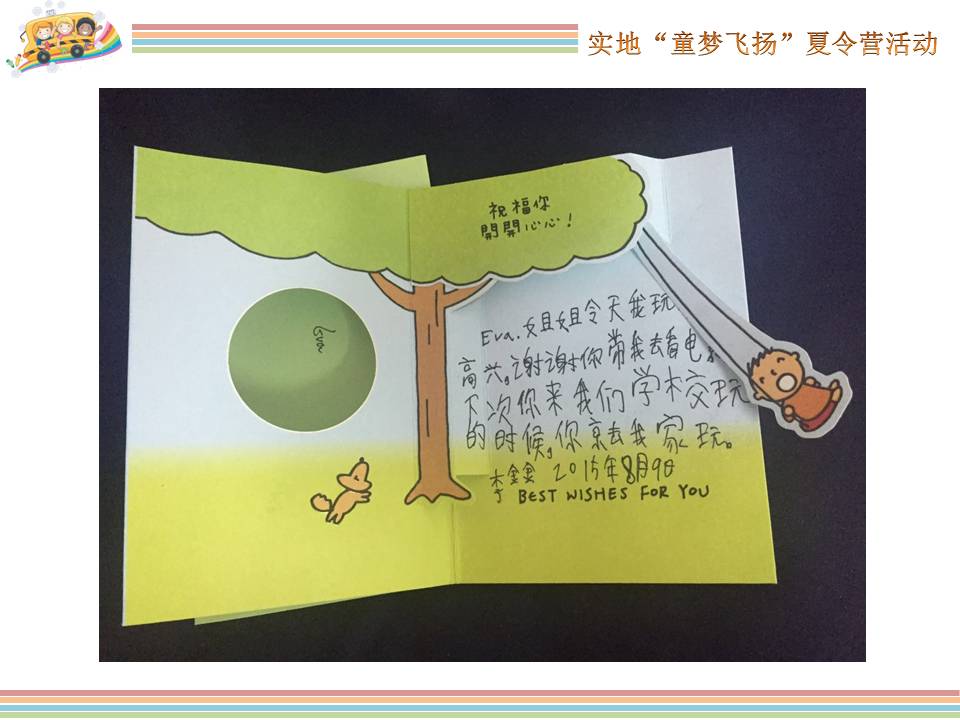 实地“童梦飞扬”夏令营活动
祝福你
開開心心！
Eva
Eva.姐姐今天我玩
高兴,谢谢你带我去看电
下次你来我们学校玩
的时候,你来去我家玩。
李鑫 2015年8月9日
BEST WISHES FOR YOU